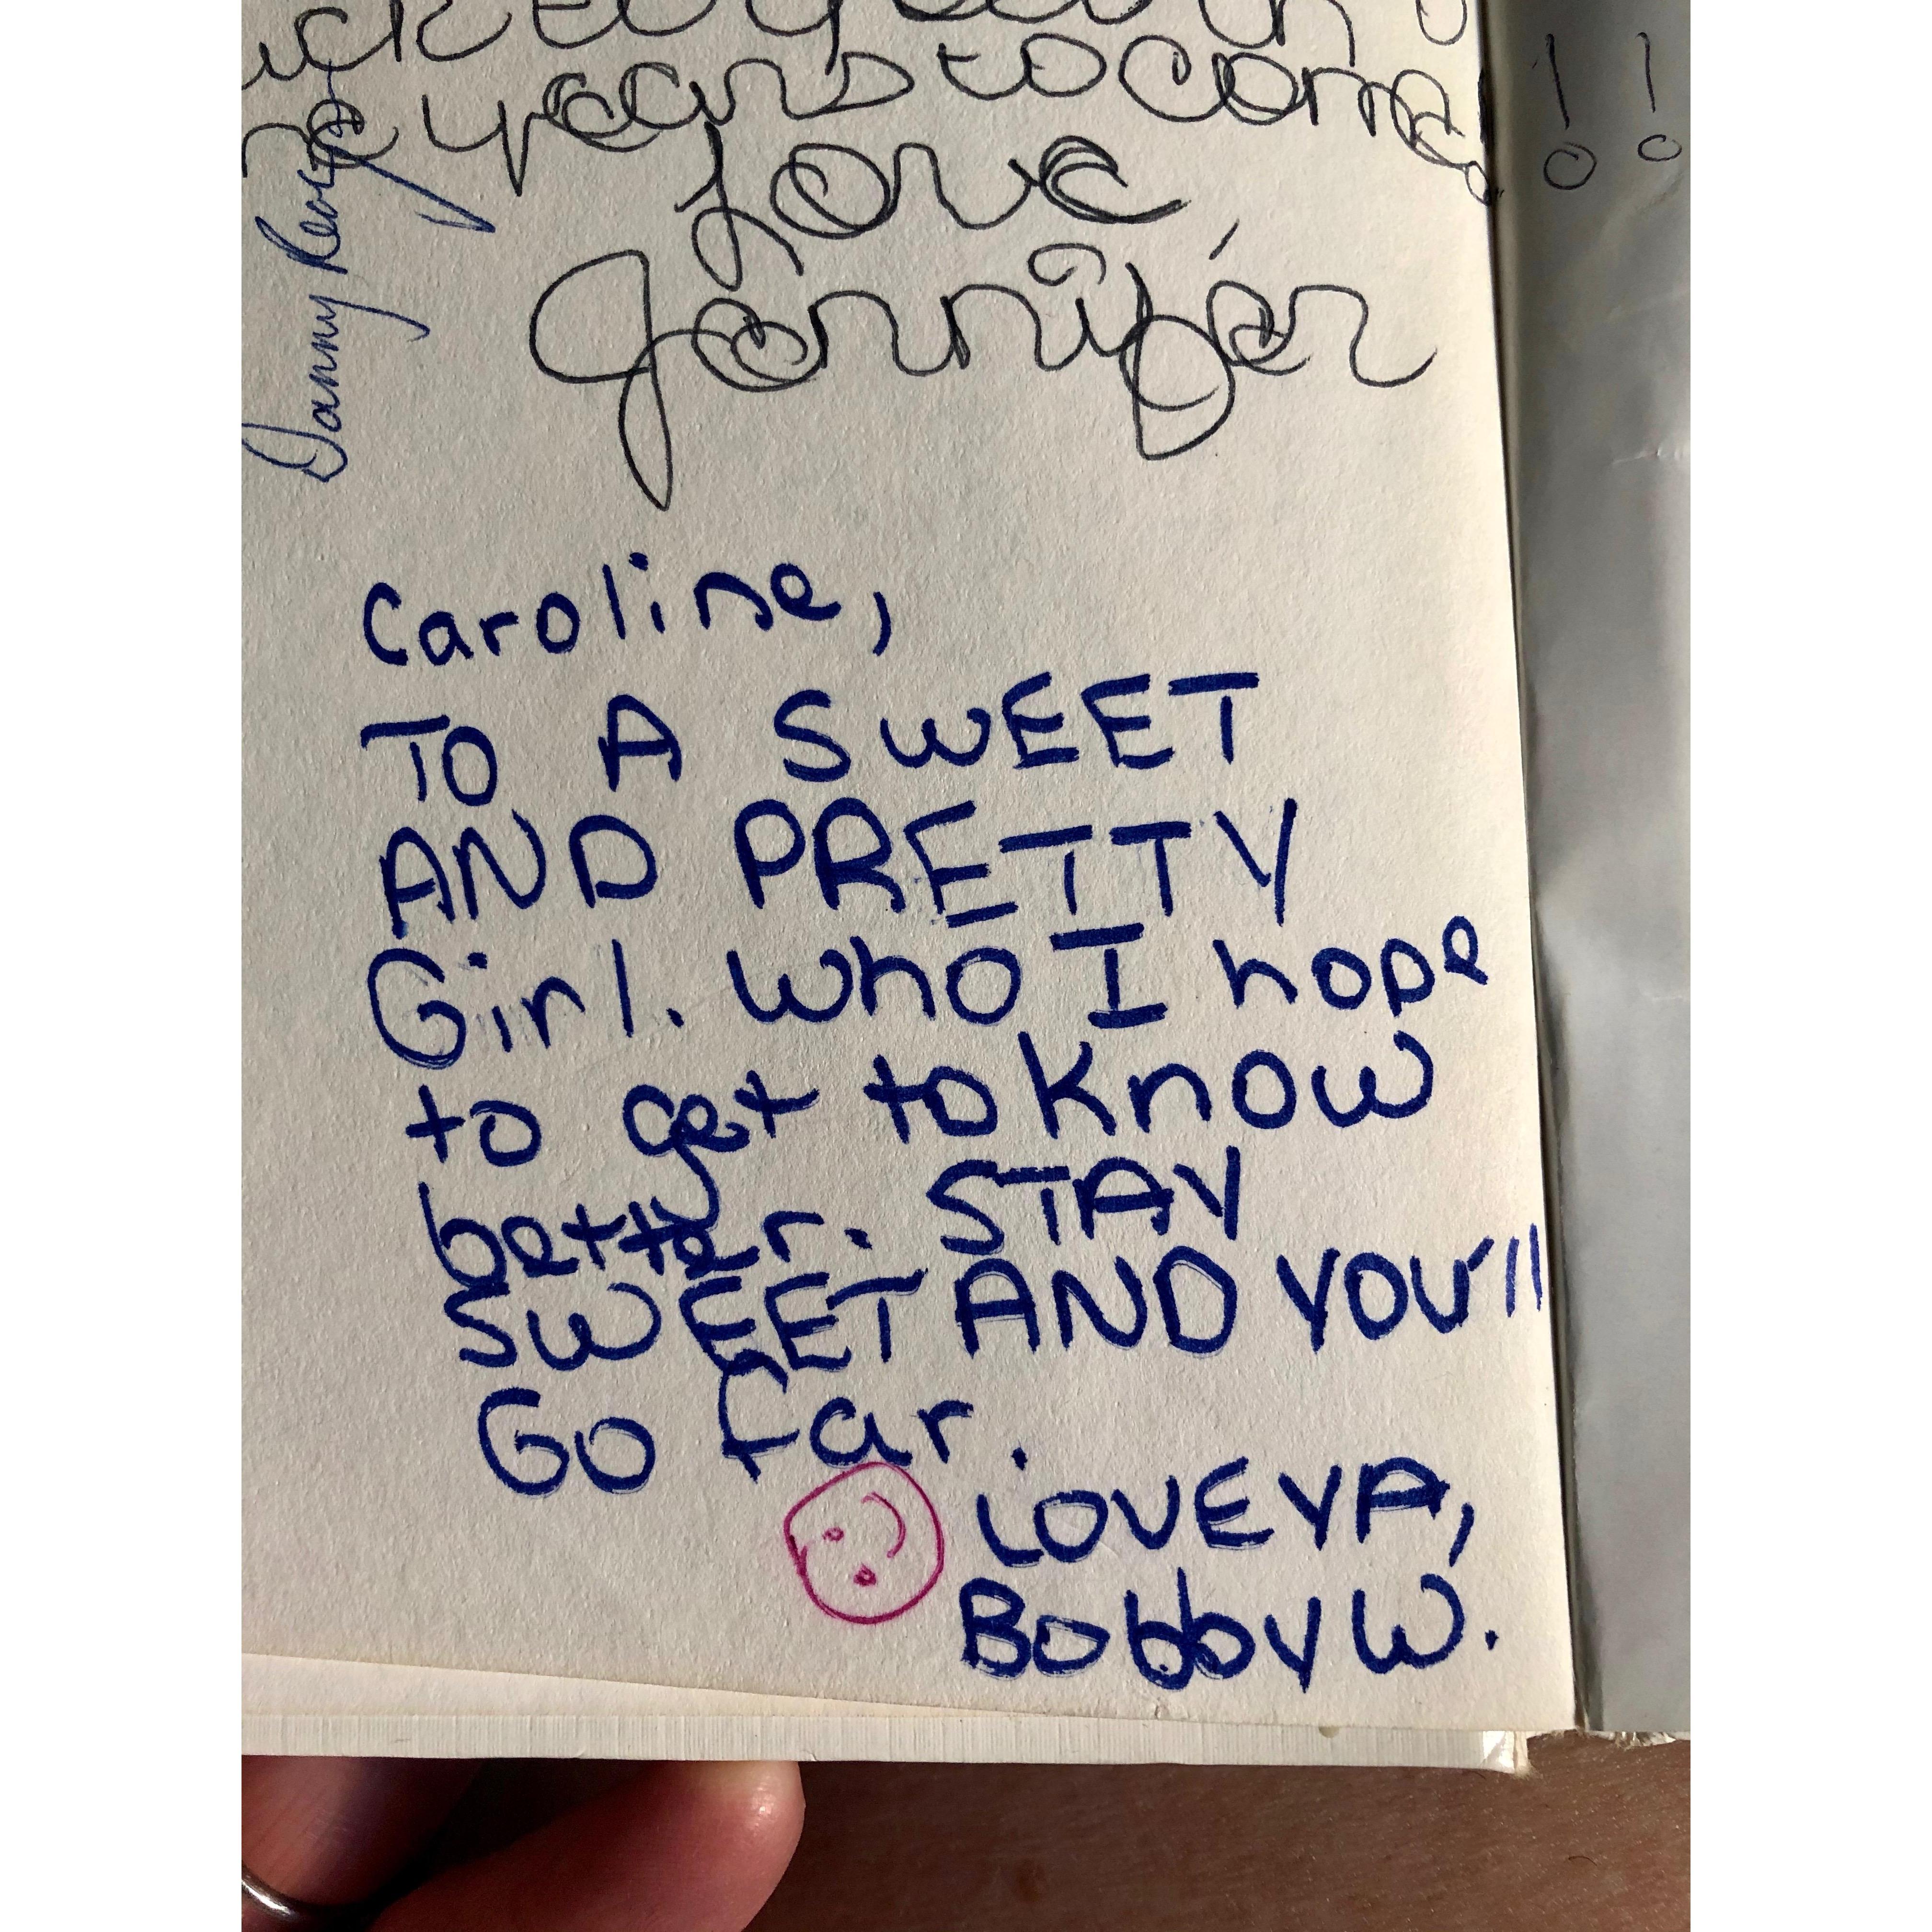 years to come!!!
Love,
Jennifer
Danny
Caroline,
TO A SWEET
AND PRETTY
Girl. Who I hope
to get to know
better. STAY
SWEET AND YOU'll
GO far.
LOVE YA,
Bobby W.